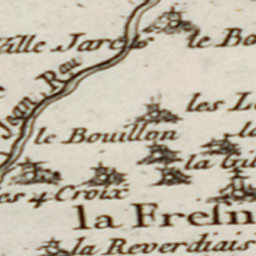 Ville Jarc
le Bo
Jean Rou
les L
le Bouillon
la
la Gil
es 4 Croix
la Freſn
la Reverdiais